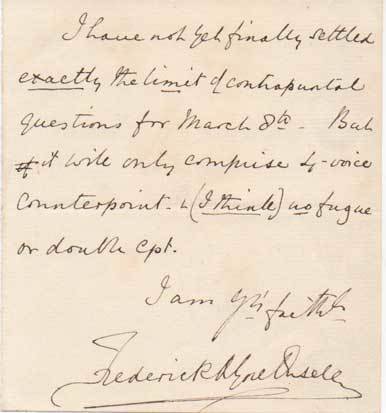 I have not yet finally settled
exactly the limit of contrapuntal
questions for March 8th. But
it will only comprise 4-voice
Counterpoint. & (I think) no fugue
or double cpt.
I am yrs faithly
Frederick A Gore Ouseley